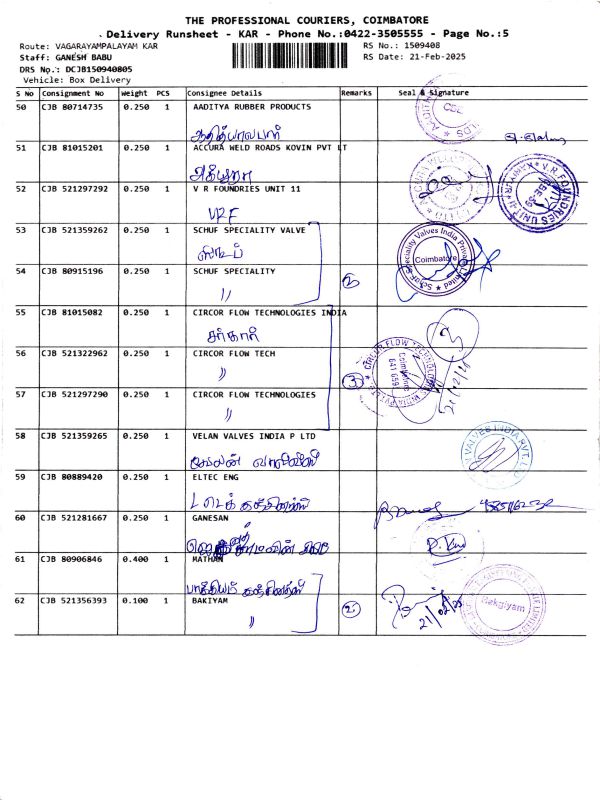 THE PROFESSIONAL COURIERS, COIMBATORE
Delivery Runsheet - KAR - Phone No.:0422-3505555 - Page No.:5
Route: VAGARAYAMPALAYAM KAR RS No.: 1509408
Staff: GANESH BABU RS Date: 21-Feb-2025
DRS No.: DCJB150940805
Vehicle: Box Delivery
S No Consignment No Weight PCS Consignee Details Remarks Seal & Signature
50 CJB 80714735 0.250 1 AADITYA RUBBER PRODUCTS
51 CJB 81015201 0.250 1 ACCURA WELD ROADS KOVIN PVT LT
52 CJB 521297292 0.250 1 V R FOUNDRIES UNIT 11
VRF
53 CJB 521359262 0.250 1 SCHUF SPECIALITY VALVE
54 CJB 80915196 0.250 1 SCHUF SPECIALITY
〃 2
Coimbatore
55 CJB 81015082 0.250 1 CIRCOR FLOW TECHNOLOGIES INDIA
சர்கார்
56 CJB 521322962 0.250 1 CIRCOR FLOW TECH
〃 3
Coimbatore
641 659
57 CJB 521297290 0.250 1 CIRCOR FLOW TECHNOLOGIES
〃
58 CJB 521359265 0.250 1 VELAN VALVES INDIA P LTD
59 CJB 80889420 0.250 1 ELTEC ENG
60 CJB 521281667 0.250 1 GANESAN
61 CJB 80906846 0.400 1 MATHAN
62 CJB 521356393 0.100 1 BAKIYAM
〃 2
Bakgiyam